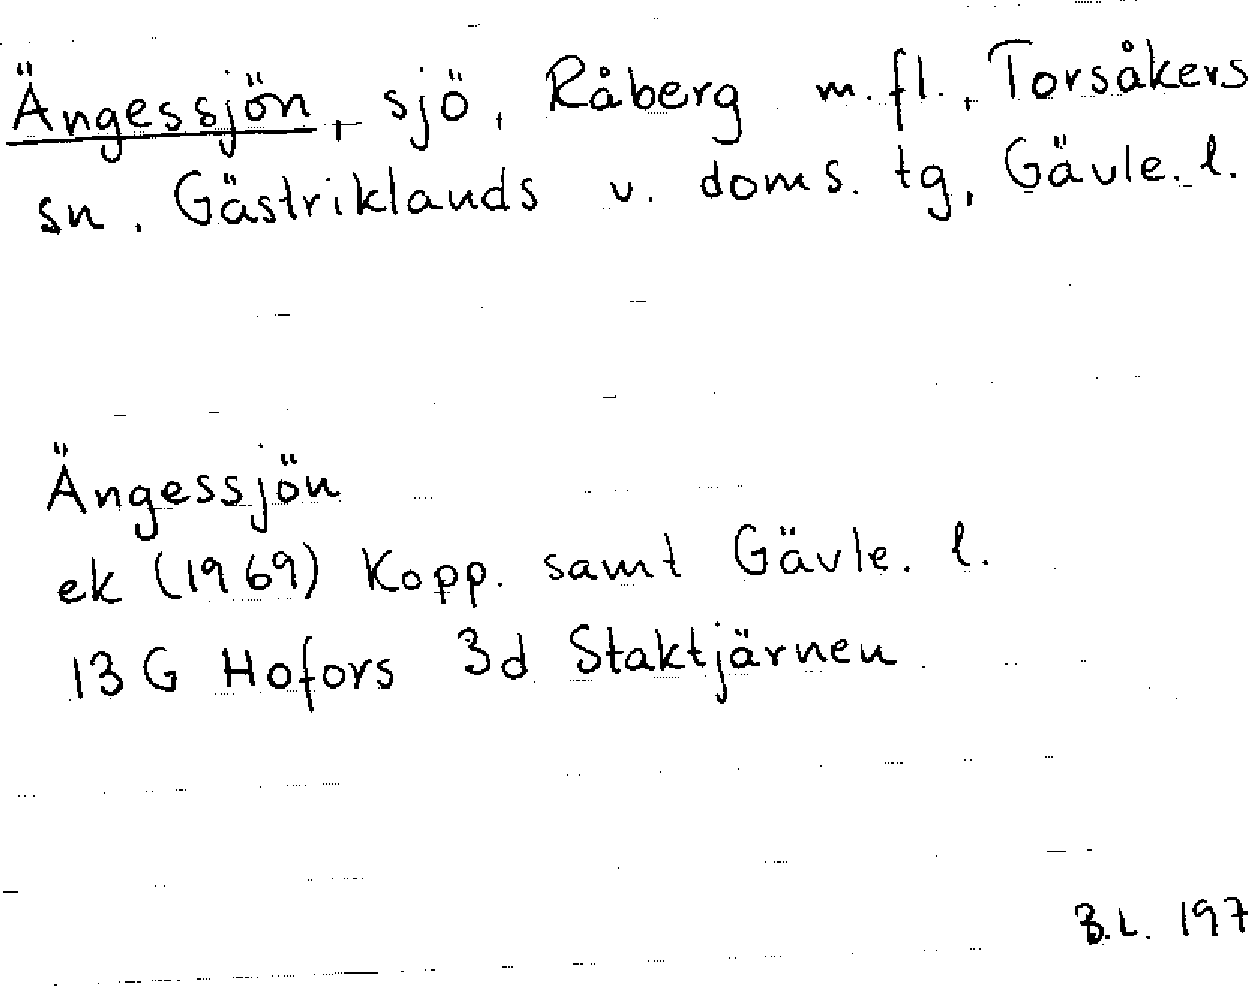 Ängessjön, sjö, Råberg m.fl., Torsåkers
sn. Gästriklands v. doms. tg, Gävle. l.
Ängessjön
ek (1969) Kopp. samt Gävle. l.
13 G Hofors 3d Staktjärnen
B.L. 197